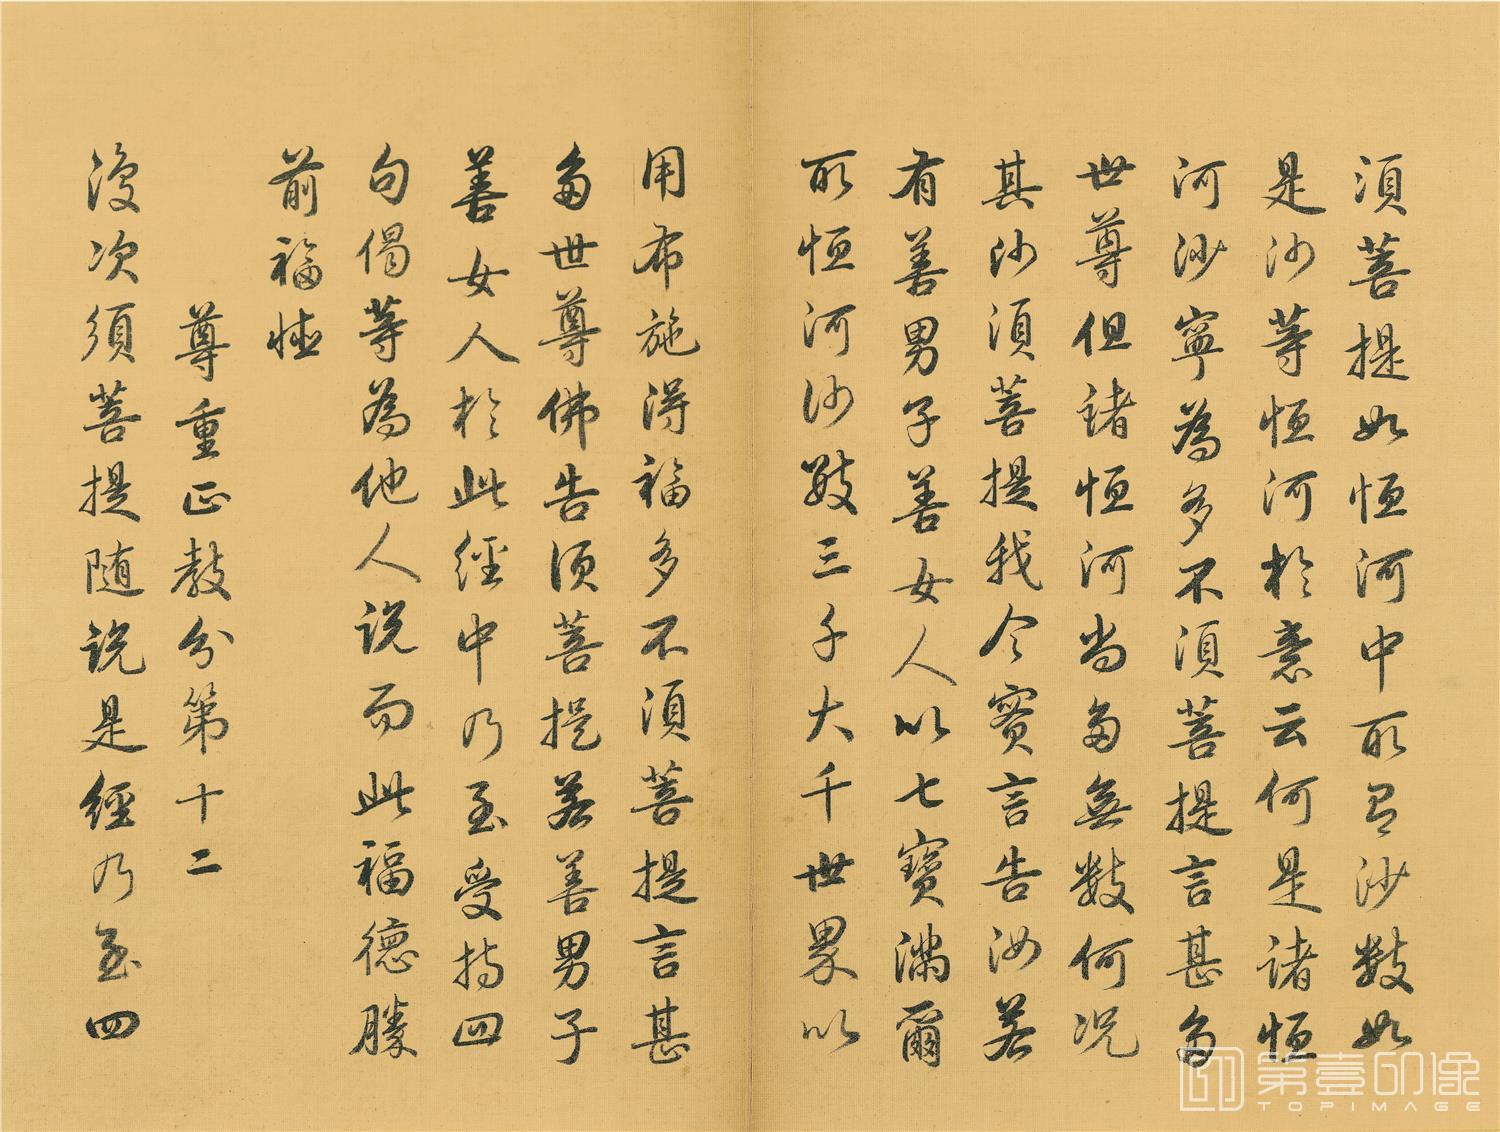 須菩提如恒河中所有沙數如
是沙等恒河於意云何是諸恒
河沙寧為多不須菩提言甚多
世尊但諸恒河尚多無數何況
其沙須菩提我今實言告汝若
有善男子善女人以七寶滿爾
所恒河沙數三千大千世界以
用布施得福多不須菩提言甚
多世尊佛告須菩提若善男子
善女人於此經中乃至受持四
句偈等為他人說而此福德勝
前福德
尊重正教分第十二
復次須菩提隨說是經乃至四
第壹印像
TOPIMAGE